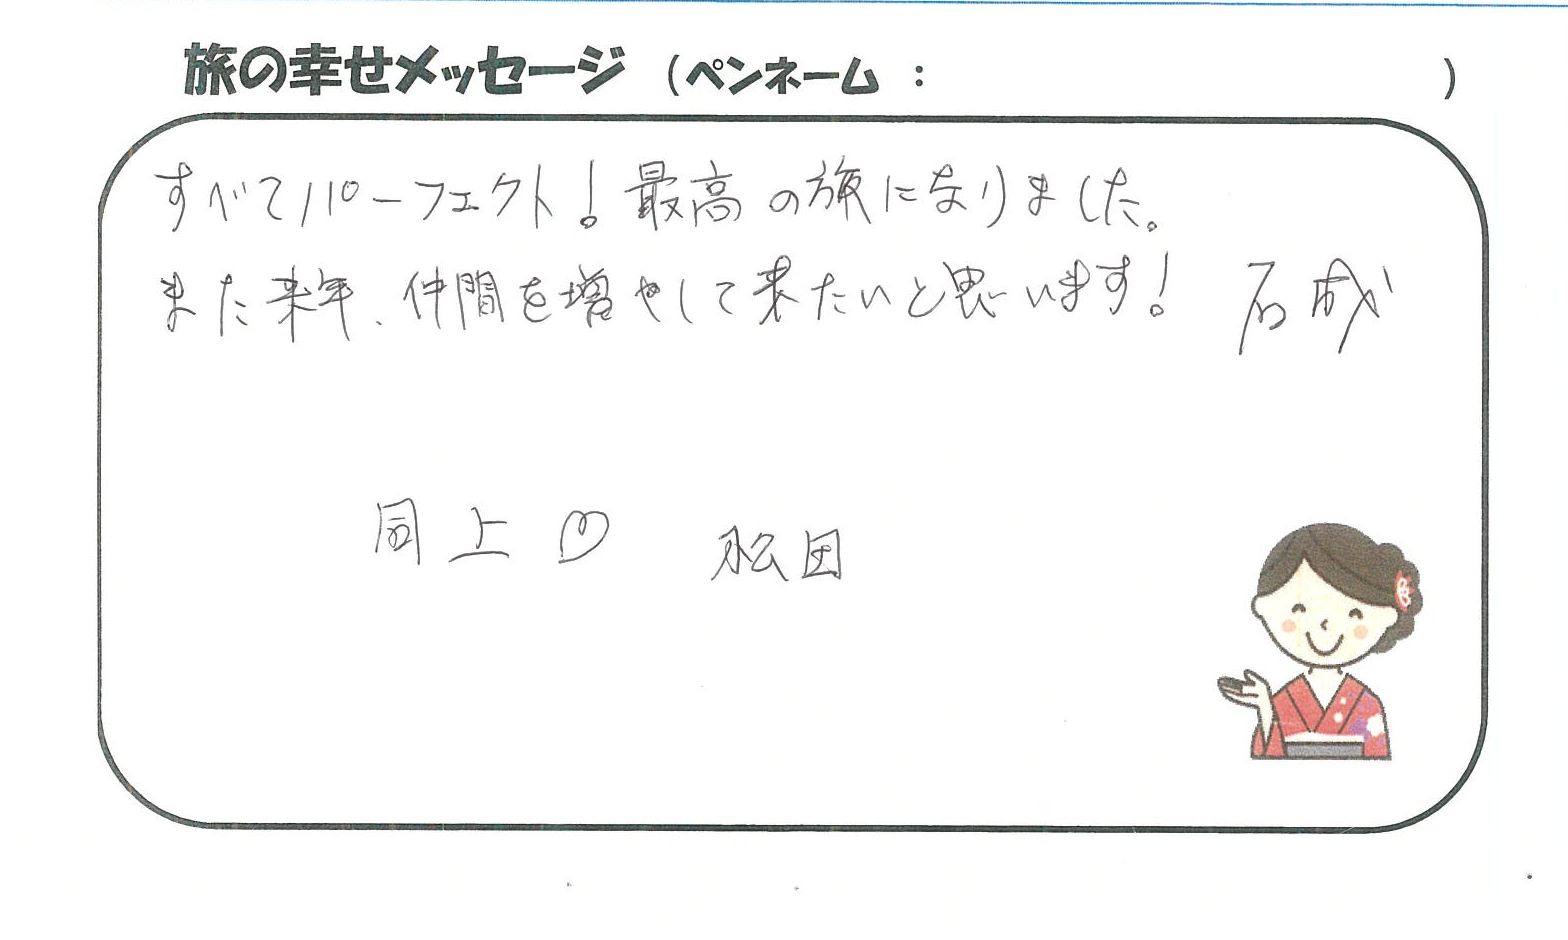 旅の幸せメッセージ (ペンネーム : )
すべてパーフェクト!最高の旅になりました。
また来年、仲間を増やして来たいと思います! 石成
同上♡ 松田